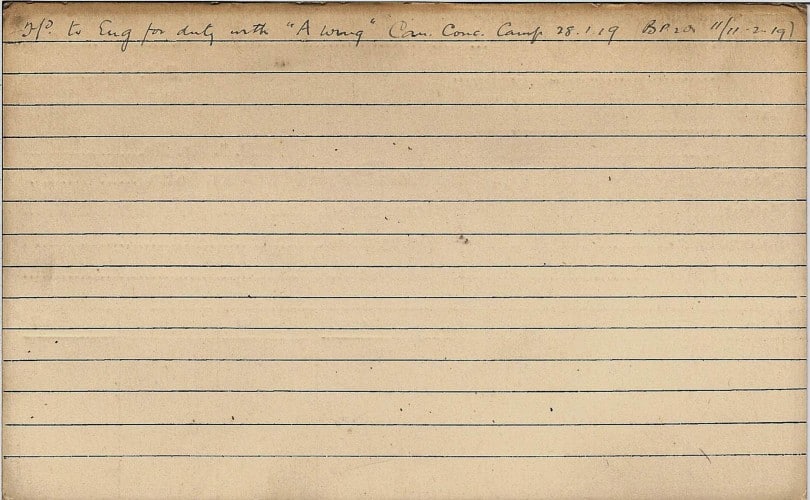 Tfd. to Eng for duty with "A wing" Can. Conc. Camp 28.1.19 11/11-2-19